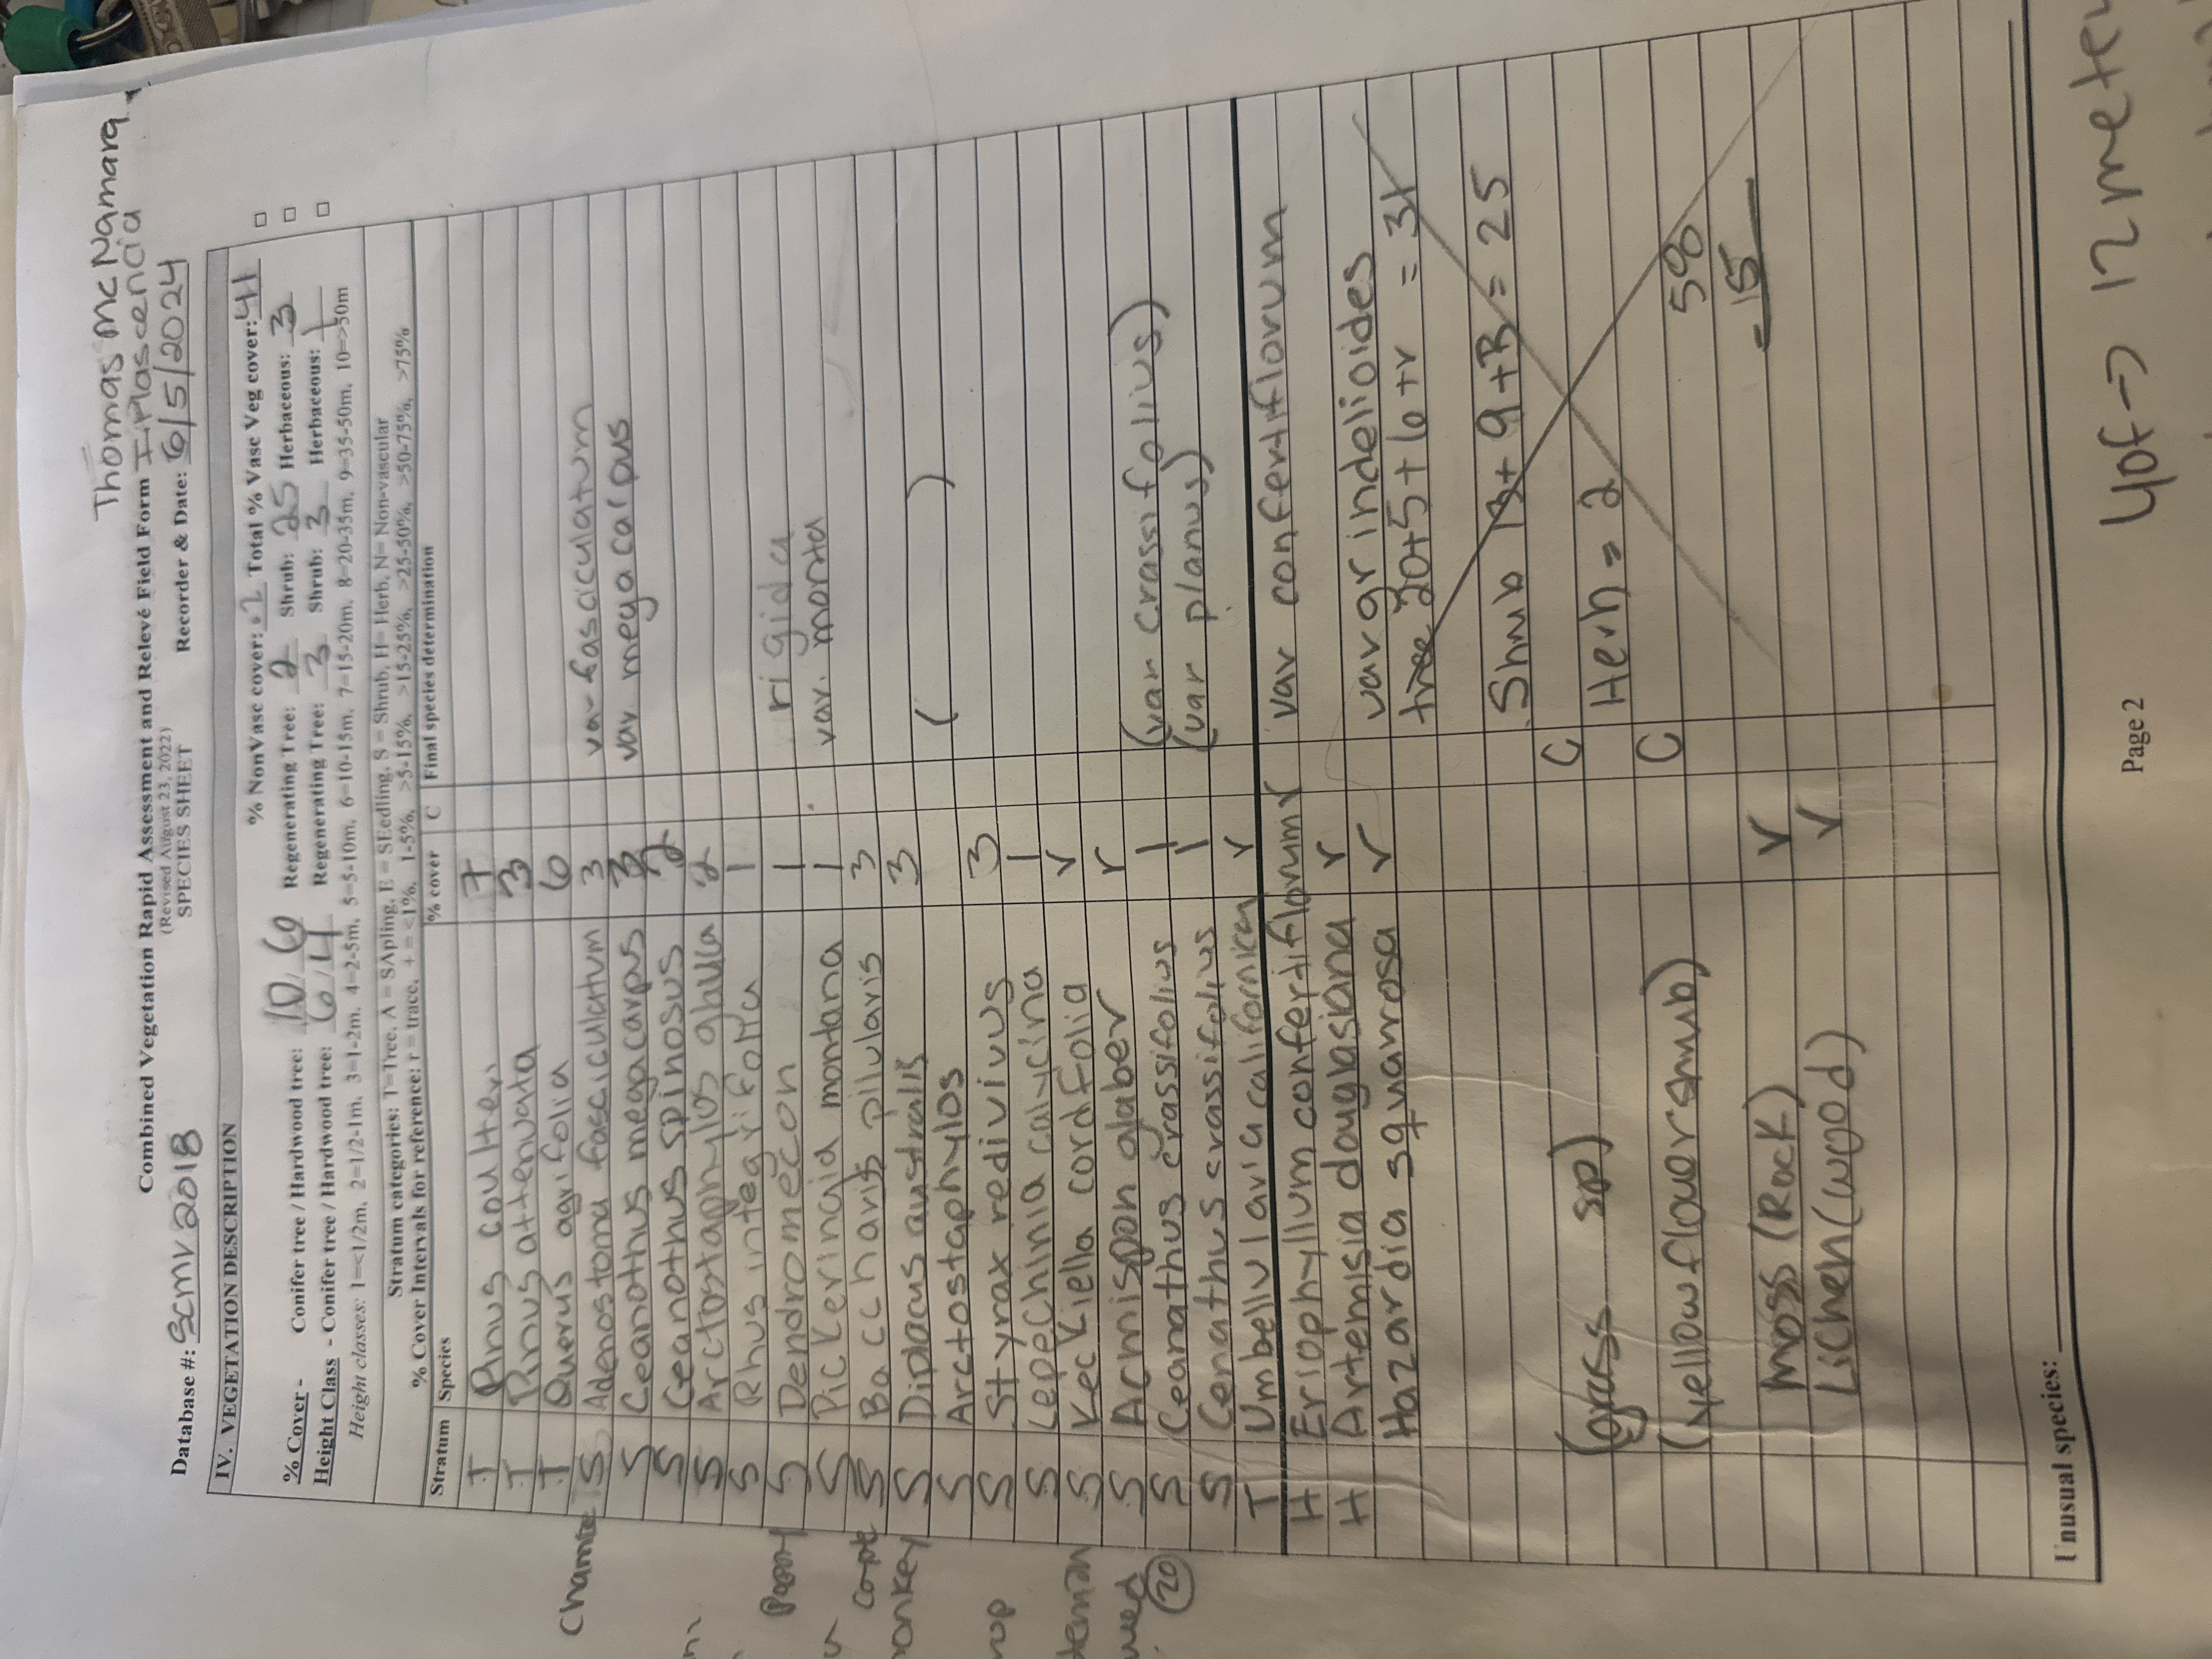 Thomas McNamara
Combined Vegetation Rapid Assessment and Relevé Field Form I. Plascencia
(Revised August 23, 2022)
Database #: SCMV2018 SPECIES SHEET Recorder & Date: 6/5/2024
IV. VEGETATION DESCRIPTION
% NonVasc cover: .2 Total % Vasc Veg cover: 41
% Cover - Conifer tree / Hardwood tree: 10/6 Regenerating Tree: 2 Shrub: 25 Herbaceous: 3
Height Class - Conifer tree / Hardwood tree: 6/4 Regenerating Tree: 3 Shrub: 3 Herbaceous: 1
Height classes: 1=<1/2m, 2=1/2-1m, 3=1-2m, 4=2-5m, 5=5-10m, 6=10-15m, 7=15-20m, 8=20-35m, 9=35-50m, 10=>50m
Stratum categories: T=Tree, A = SApling, E = SEedling, S = Shrub, H= Herb, N= Non-vascular
% Cover Intervals for reference: r = trace, + = <1%, 1-5%, >5-15%, >15-25%, >25-50%, >50-75%, >75%
Stratum Species % cover C Final species determination
T Pinus coulteri 7
T Pinus attenuata 3
T Quercus agrifolia 6
Chamise S Adenostoma fasciculatum 3 var fasciculatum
S Ceanothus megacarpus 3 var. megacarpus
S Ceanothus spinosus 2
S Arctostaphylos glauca 2
S Rhus integrifolia 1
Poppy S Dendromecon 1 rigida
S Pickeringia montana 1 var. montana
coyote S Baccharis pilularis 3
monkey S Diplacus australis 3
S Arctostaphylos ( )
S Styrax redivivus 3
S Lepechinia calycina 1
S Keckiella cordifolia r
S Acmispon glaber r
20 S Ceanathus crassifolius 1 (var crassifolius)
S Cenathus crassifolius 1 (var planus)
T Umbellularia californica r
H Eriophyllum confertiflorum r var confertiflorum
H Artemisia douglasiana r
Hazardia squarrosa r var grindelioides
tree 20+5+6+r = 31
Shrub 13+9+R = 25
(grass sp) C
Herh = 2
(Yellow flower shrub) C
58
-15
Moss (Rock) r
Lichen (wood) r
Unusual species:
Page 2